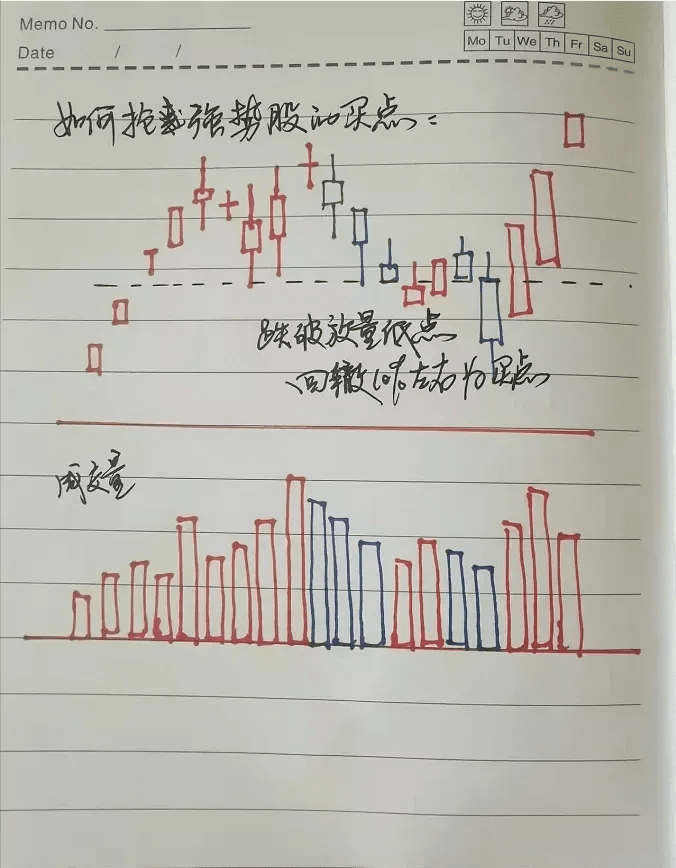 Memo No.
Date / /
Mo Tu We Th Fr Sa Su
如何抢筹强势股的买点：
跌破放量低点
回辙10%左右为买点
成交量